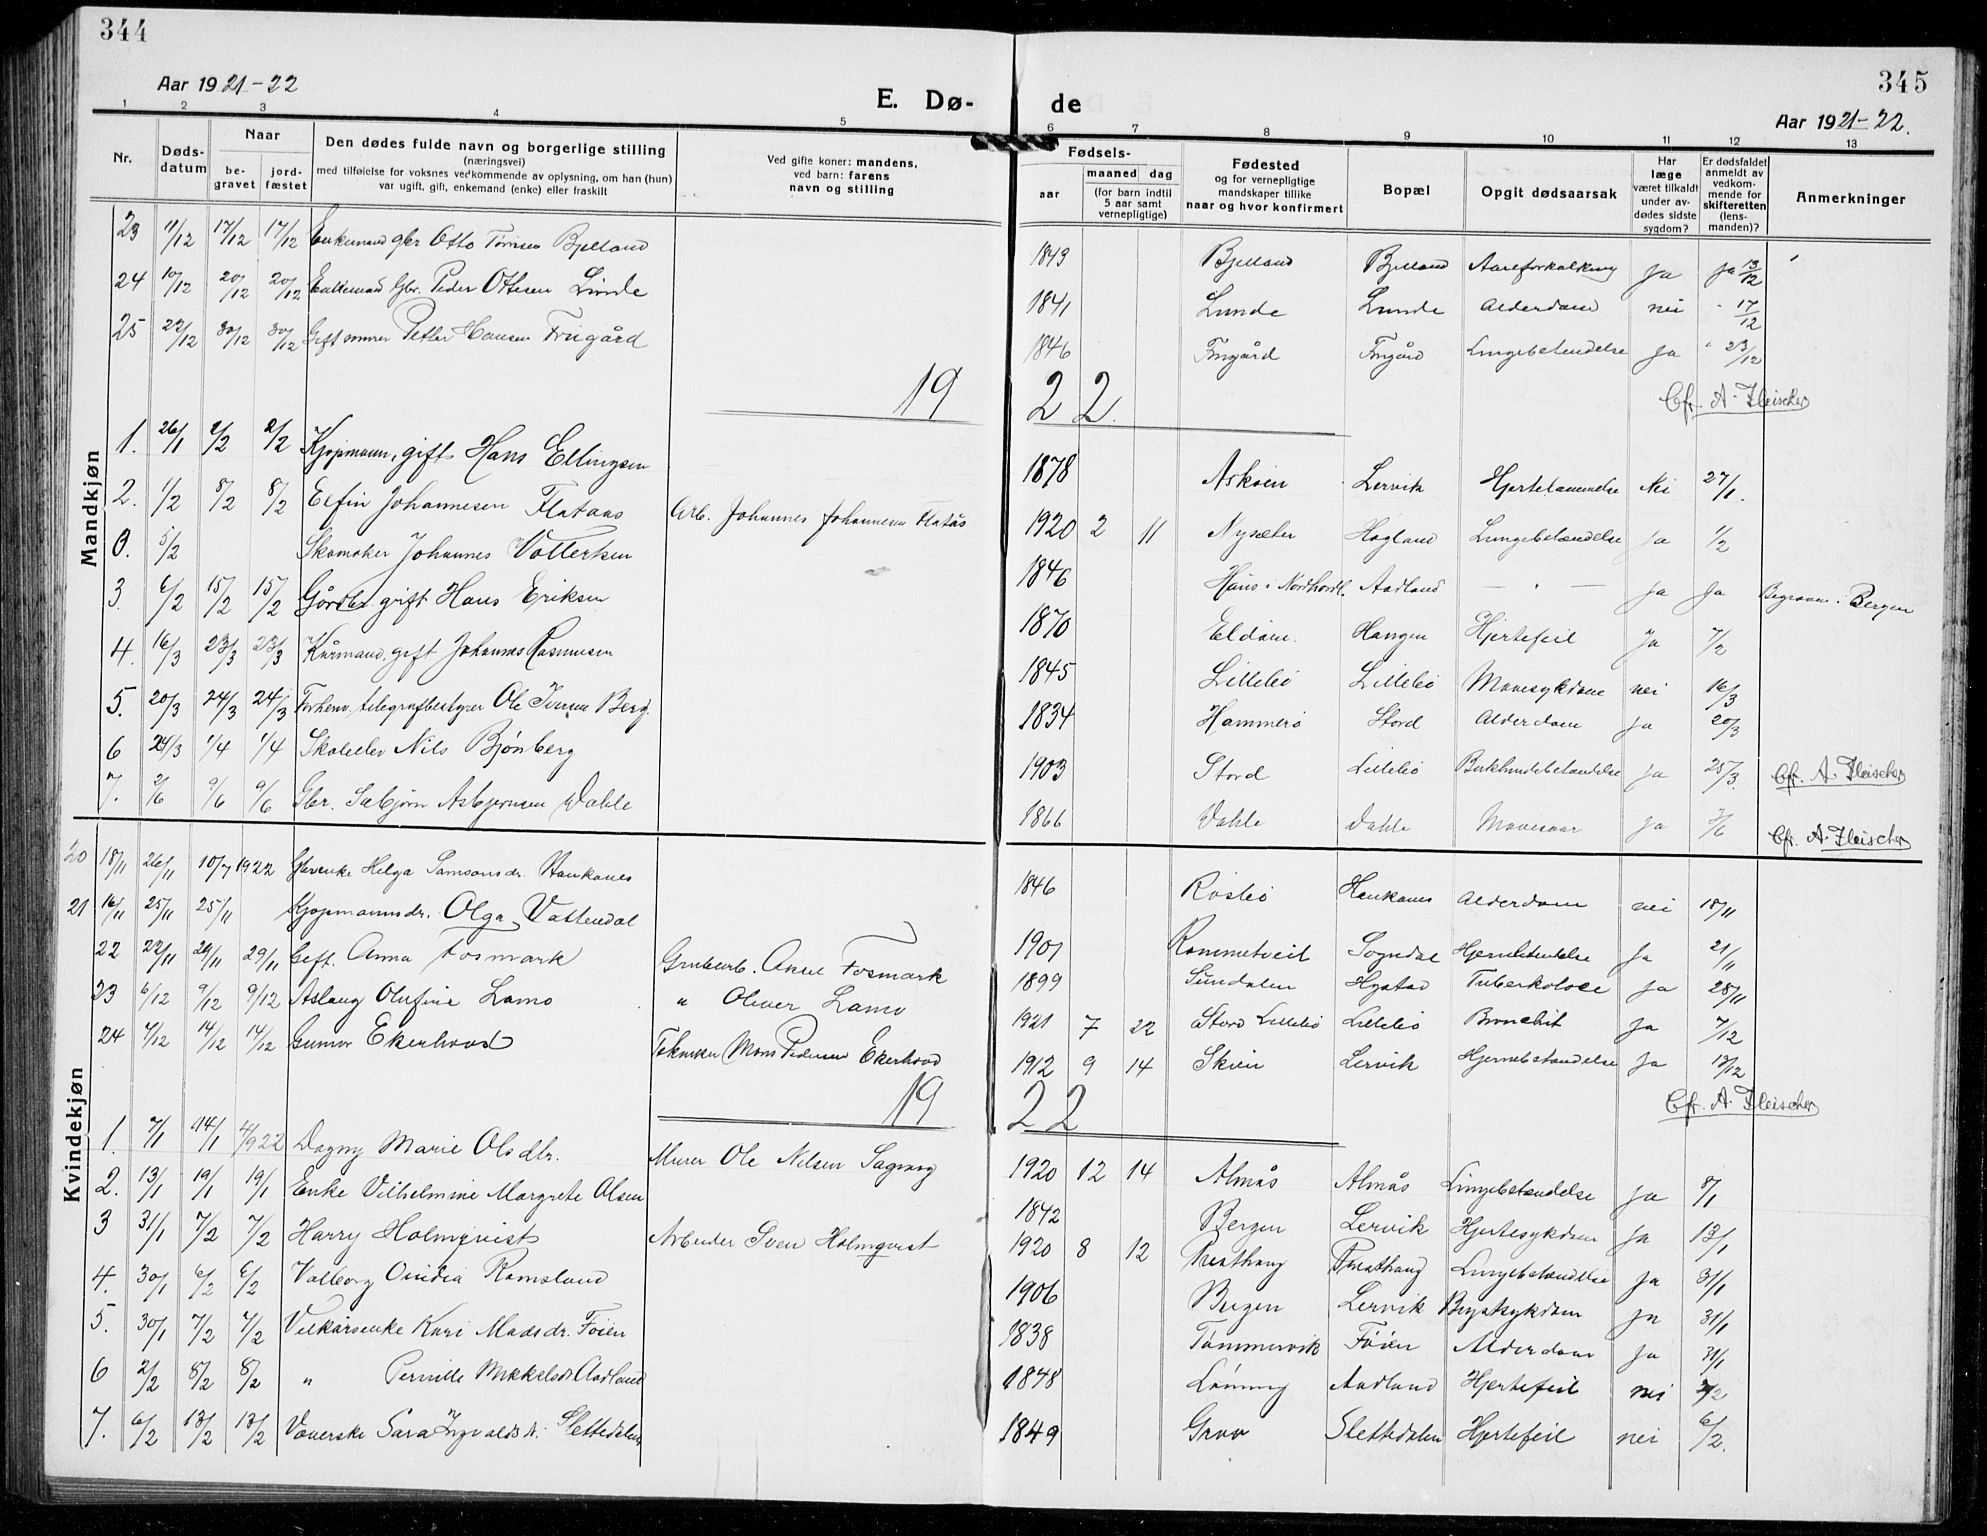 344
Aar 1921-22
E. Dø-
1 2 3 4 5
Nr.
Døds-
datum
Naar
be-
gravet
jord-
fæstet
Den dødes fulde navn og borgerlige stilling
(næringsvei)
med tilføielse for voksnes vedkommende av oplysning, om han (hun)
var ugift, gift, enkemand (enke) eller fraskilt
Ved gifte koner: mandens,
ved barn: farens
navn og stilling
Mandkjøn
23 11/12 17/12 17/12 Enkemand gbr Otto Bjelland
24 10/12 20/12 20/12 Enkemand Gbr. Peder Ottesen Lunde
25 22/12 30/12 30/12 Gift murer Petter Hansen Frugård
19
1. 26/1 2/2 2/2 Kjøpmann, gift Hans Ellingsen
2. 1/2 8/2 8/2 Elfin Johannesen Flataas Arb. Johannes Johannesen Flatås
0. 5/2 Skomaker Johannes
3. 6/2 15/2 15/2 gift Hans Eriksen
4. 16/3 23/3 23/3 Kårmand, gift Johannes Rasmusen
5. 20/3 24/3 24/3 Forhenv. telegrafbestyrer Ole Iversen Berg.
6 24/3 1/4 1/4 Skoleelev Nils Bjønberg
7. 2/6 9/6 9/6 Gbr. Sæbjørn Asbjørnsen Dahle
Kvindekjøn
20 18/11 26/11 10/7 1922 Helga Samsonsdr. Haukanes
21 16/11 25/11 25/11 Kjøpmannsdr. Olga Vattendal
22 22/11 29/11 29/11 Gift. Anna Fosmark Grubearb. Fosmark
23 6/12 9/12 9/12 Aslaug Olufine Lamo " Oliver Lamo
24 7/12 14/12 14/12 Gunvor Ekerhovd Tekniker Mons Pedersen Ekerhovd
19
1. 7/1 14/1 4/9 22 Dagny Marie Olsdtr. Murer Ole Nilsen Sagvåg
2. 13/1 19/1 19/1 Enke Vilhelmine Margrete Olsen
3 31/1 7/2 7/2 Harry Holmqvist Arbeider Sven Holmqvist
4. 30/1 6/2 6/2 Valborg Ovidia Ramsland
5. 30/1 7/2 7/2 Vilkårsenke Kari Madsdr. Føien
6 2/2 8/2 8/2 " Pernille Mikkelsdr Aadland
7. 6/2 13/2 13/2 Væverske Sara Ingvaldsd. Slettedalen
345
Aar 1921-22.
de
6 7 8 9 10 11 12 13
Fødsels-
aar
maaned dag
(for barn indtil
5 aar samt
vernepligtige)
Fødested
og for vernepligtige
mandskaper tillike
naar og hvor konfirmert
Bopæl
Opgit dødsaarsak
Har
læge
været tilkaldt
under av-
dødes sidste
sygdom?
Er dødsfaldet
anmeldt av
vedkom-
mende for
skifteretten
(lens-
manden)?
Anmerkninger
1843 Bjelland Bjelland Aareforkalkning Ja Ja 13/12
1841 Lunde Lunde Alderdom nei " 17/12
1846 Frugård Frugård Lungebetendelse Ja " 23/12
22 Cfr. A. Fleischer
1878 Askøen Lervik Hjertelammelse Nei 27/1.
1920 2 11 Nysæter Hogland Lungebetændelse Ja 1/2
1846 Haus i Nordhordl. Aadland — " — Ja Ja Begraven i Bergen
1870 Eldøen. Haugen Hjertefeil Ja 7/2
1845 Lillebø Lillebø Mavesykdom nei 16/3
1834 Hammerø Stord Alderdom Ja 20/3
1903 Stord Lillebø Bukhindebetændelse Ja 25/3. Cfr. A. Fleischer
1866 Dahle Dahle Mavesaar Ja 3/6 Cfr. A. Fleischer
1846 Røsbø Haukanes Alderdom nei 18/11
1901 Rommetveit Sogndal Hjernebetendelse Ja 21/11
1899 Sundalen Hystad Tuberkolose Ja 28/11
1921 7 22 Stord Lillebø Lillebø Bronchit Ja 7/12
1912 9 14 Skien Lervik Hjernebetændelse Ja 18/12
22 Cfr. A. Fleischer
1920 12 14 Almås Almås Lungebetændelse Ja 8/1
1842 Bergen Lervik Hjertesykdom Ja 13/1
1920 8 12 Presthaug Presthaug Lungebetændelse Ja 31/1
1906 Bergen Lervik Brystsykdom Ja 31/1
1838 Tømmervik Føien Alderdom Ja 31/1
1848 Lønning Aadland Hjertefeil nei 3/2
1849 Grov Slettedalen Hjertefeil nei 6/2.